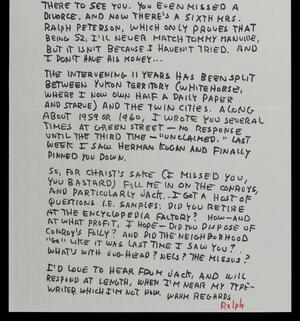 THERE TO SEE YOU. YOU EVEN MISSED A
DIVORCE, AND NOW THERE'S A SIXTH MRS.
RALPH PETERSON, WHICH ONLY PROVES THAT
BEING 52, I'LL NEVER MATCH TOMMY MANVILLE,
BUT IT ISN'T BECAUSE I HAVEN'T TRIED. AND
I DON'T HAVE HIS MONEY...
THE INTERVENING 11 YEARS HAS BEEN SPLIT
BETWEEN YUKON TERRITORY (WHITEHORSE,
WHERE I NOW OWN HALF A DAILY PAPER
AND STARVE) AND THE TWIN CITIES. ALONG
ABOUT 1959 OR 1960, I WROTE YOU SEVERAL
TIMES AT GREEN STREET — NO RESPONSE
UNTIL THE THIRD TIME — "UNCLAIMED." LAST
WEEK I SAW HERMAN KOGAN AND FINALLY
PINNED YOU DOWN.
SO, FOR CHRIST'S SAKE (I MISSED YOU,
YOU BASTARD) FILL ME IN ON THE CONROYS,
AND PARTICULARLY JACK. I GOT A HOST OF
QUESTIONS I.E. SAMPLES: DID YOU RETIRE
AT THE ENCYCLOPEDIA FACTORY? HOW—AND
AT WHAT PROFIT, I HOPE—DID YOU DISPOSE OF
CONROY'S FOLLY? AND DID THE NEIGHBORHOOD
"GO" LIKE IT WAS LAST TIME I SAW YOU?
WHAT'S WITH JUG-HEAD? THE MISSUS?
I'D LOVE TO HEAR FROM JACK, AND WILL
RESPOND AT LENGTH, WHEN I'M NEAR MY TYPE-
WRITER WHICH I'M NOT NOW. WARM REGARDS,
Ralph